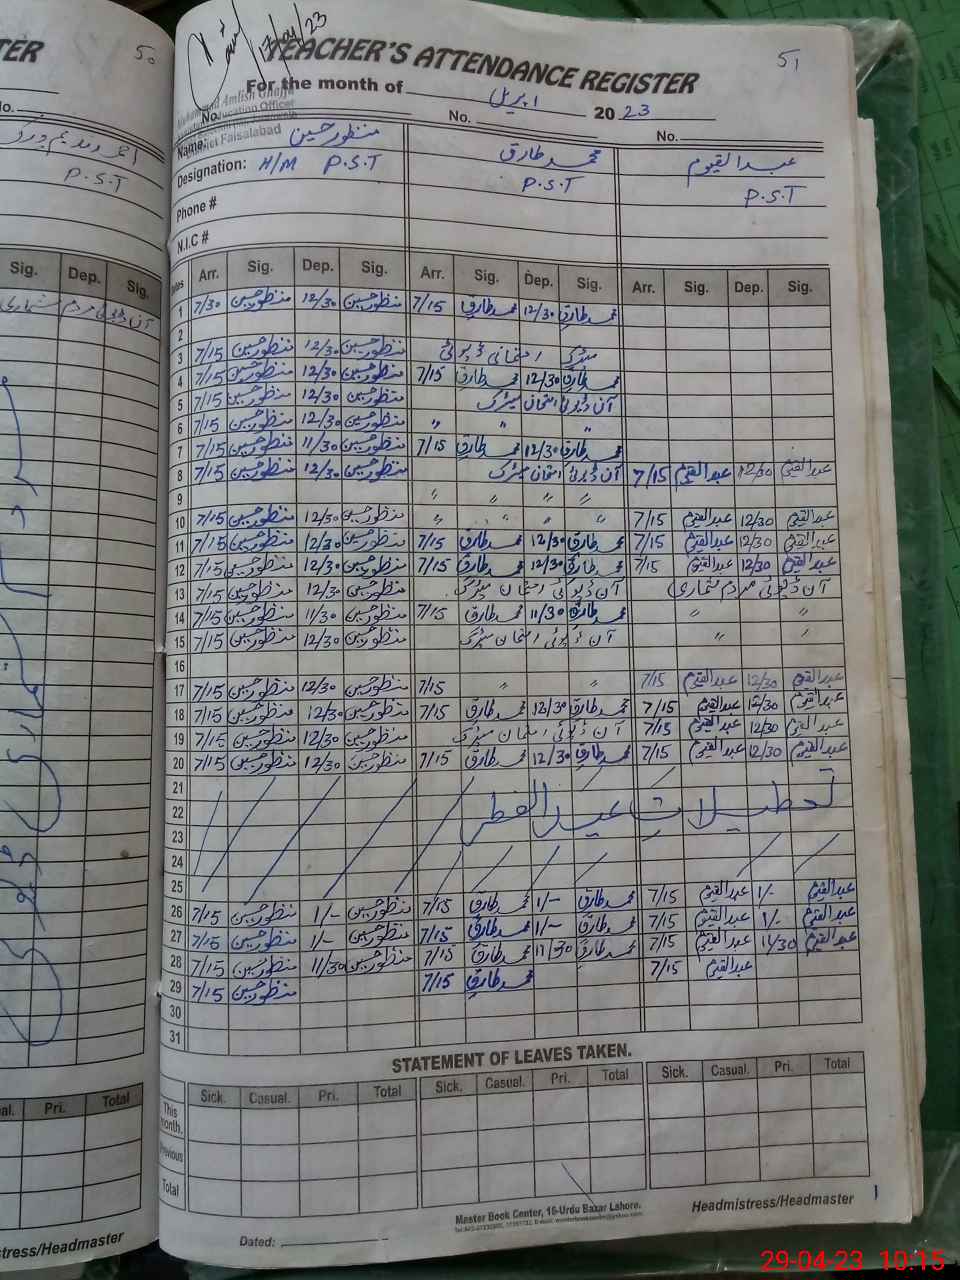 TER
50
51
17/ay/23
TEACHER'S ATTENDANCE REGISTER
For the month of اپریل 2023
Muhammad Amlish
Education Officer
Faisalabad
No. No. No.
Name: منظور حسین محمد طارق عبدالقیوم
Designation: H/M P.S.T P.S.T P.S.T
P.S.T
Phone #
N.I.C #
Sig. Dep. Sig.
Arr. Sig. Dep. Sig. Arr. Sig. Dep. Sig. Arr. Sig. Dep. Sig.
آن ڈیوٹی مردم شماری
1 7/30 منظور حسین 12/30 منظور حسین 7/15 محمد طارق 12/30 محمد طارق
2
3 7/15 منظور حسین 12/30 منظور حسین امتحانی ڈیوٹی میٹرک
4 7/15 منظور حسین 12/30 منظور حسین 7/15 محمد طارق 12/30 محمد طارق
5 7/15 منظور حسین 12/30 منظور حسین آن ڈیوٹی امتحان میٹرک
6 7/15 منظور حسین 12/30 منظور حسین " " "
7 7/15 منظور حسین 11/30 منظور حسین 7/15 محمد طارق 12/30 محمد طارق
8 7/15 منظور حسین 12/30 منظور حسین آن ڈیوٹی امتحان میٹرک 7/15 عبدالقیوم 12/30 عبدالقیوم
9 " " " "
10 7/15 منظور حسین 12/30 منظور حسین " " " " 7/15 عبدالقیوم 12/30 عبدالقیوم
11 7/15 منظور حسین 12/30 منظور حسین 7/15 محمد طارق 12/30 محمد طارق 7/15 عبدالقیوم 12/30 عبدالقیوم
12 7/15 منظور حسین 12/30 منظور حسین 7/15 محمد طارق 12/30 محمد طارق 7/15 عبدالقیوم 12/30 عبدالقیوم
13 7/15 منظور حسین 12/30 منظور حسین آن ڈیوٹی امتحان میٹرک آن ڈیوٹی مردم شماری
14 7/15 منظور حسین 11/30 منظور حسین 7/15 محمد طارق 11/30 محمد طارق " "
15 7/15 منظور حسین 12/30 منظور حسین آن ڈیوٹی امتحان میٹرک " "
16
17 7/15 منظور حسین 12/30 منظور حسین 7/15 " " 7/15 عبدالقیوم 12/30 عبدالقیوم
18 7/15 منظور حسین 12/30 منظور حسین 7/15 محمد طارق 12/30 محمد طارق 7/15 عبدالقیوم 12/30 عبدالقیوم
19 7/15 منظور حسین 12/30 منظور حسین آن ڈیوٹی امتحان میٹرک 7/15 عبدالقیوم 12/30 عبدالقیوم
20 7/15 منظور حسین 12/30 منظور حسین 7/15 محمد طارق 12/30 محمد طارق 7/15 عبدالقیوم 12/30 عبدالقیوم
21
22 تعطیلات عید الفطر
23
24
25
26 7/15 منظور حسین 1/- منظور حسین 7/15 محمد طارق 1/- محمد طارق 7/15 عبدالقیوم 1/- عبدالقیوم
27 7/15 منظور حسین 1/- منظور حسین 7/15 محمد طارق 1/- محمد طارق 7/15 عبدالقیوم 1/- عبدالقیوم
28 7/15 منظور حسین 11/30 منظور حسین 7/15 محمد طارق 11/30 محمد طارق 7/15 عبدالقیوم 11/30 عبدالقیوم
29 7/15 منظور حسین 7/15 محمد طارق 7/15 عبدالقیوم
30
31
STATEMENT OF LEAVES TAKEN.
Pri. Total
Sick. Casual. Pri. Total Sick. Casual. Pri. Total Sick. Casual. Pri. Total
This month.
Previous
Total
Master Book Center, 16-Urdu Bazar Lahore.
Headmistress/Headmaster
stress/Headmaster
Dated:
29-04-23 10:15